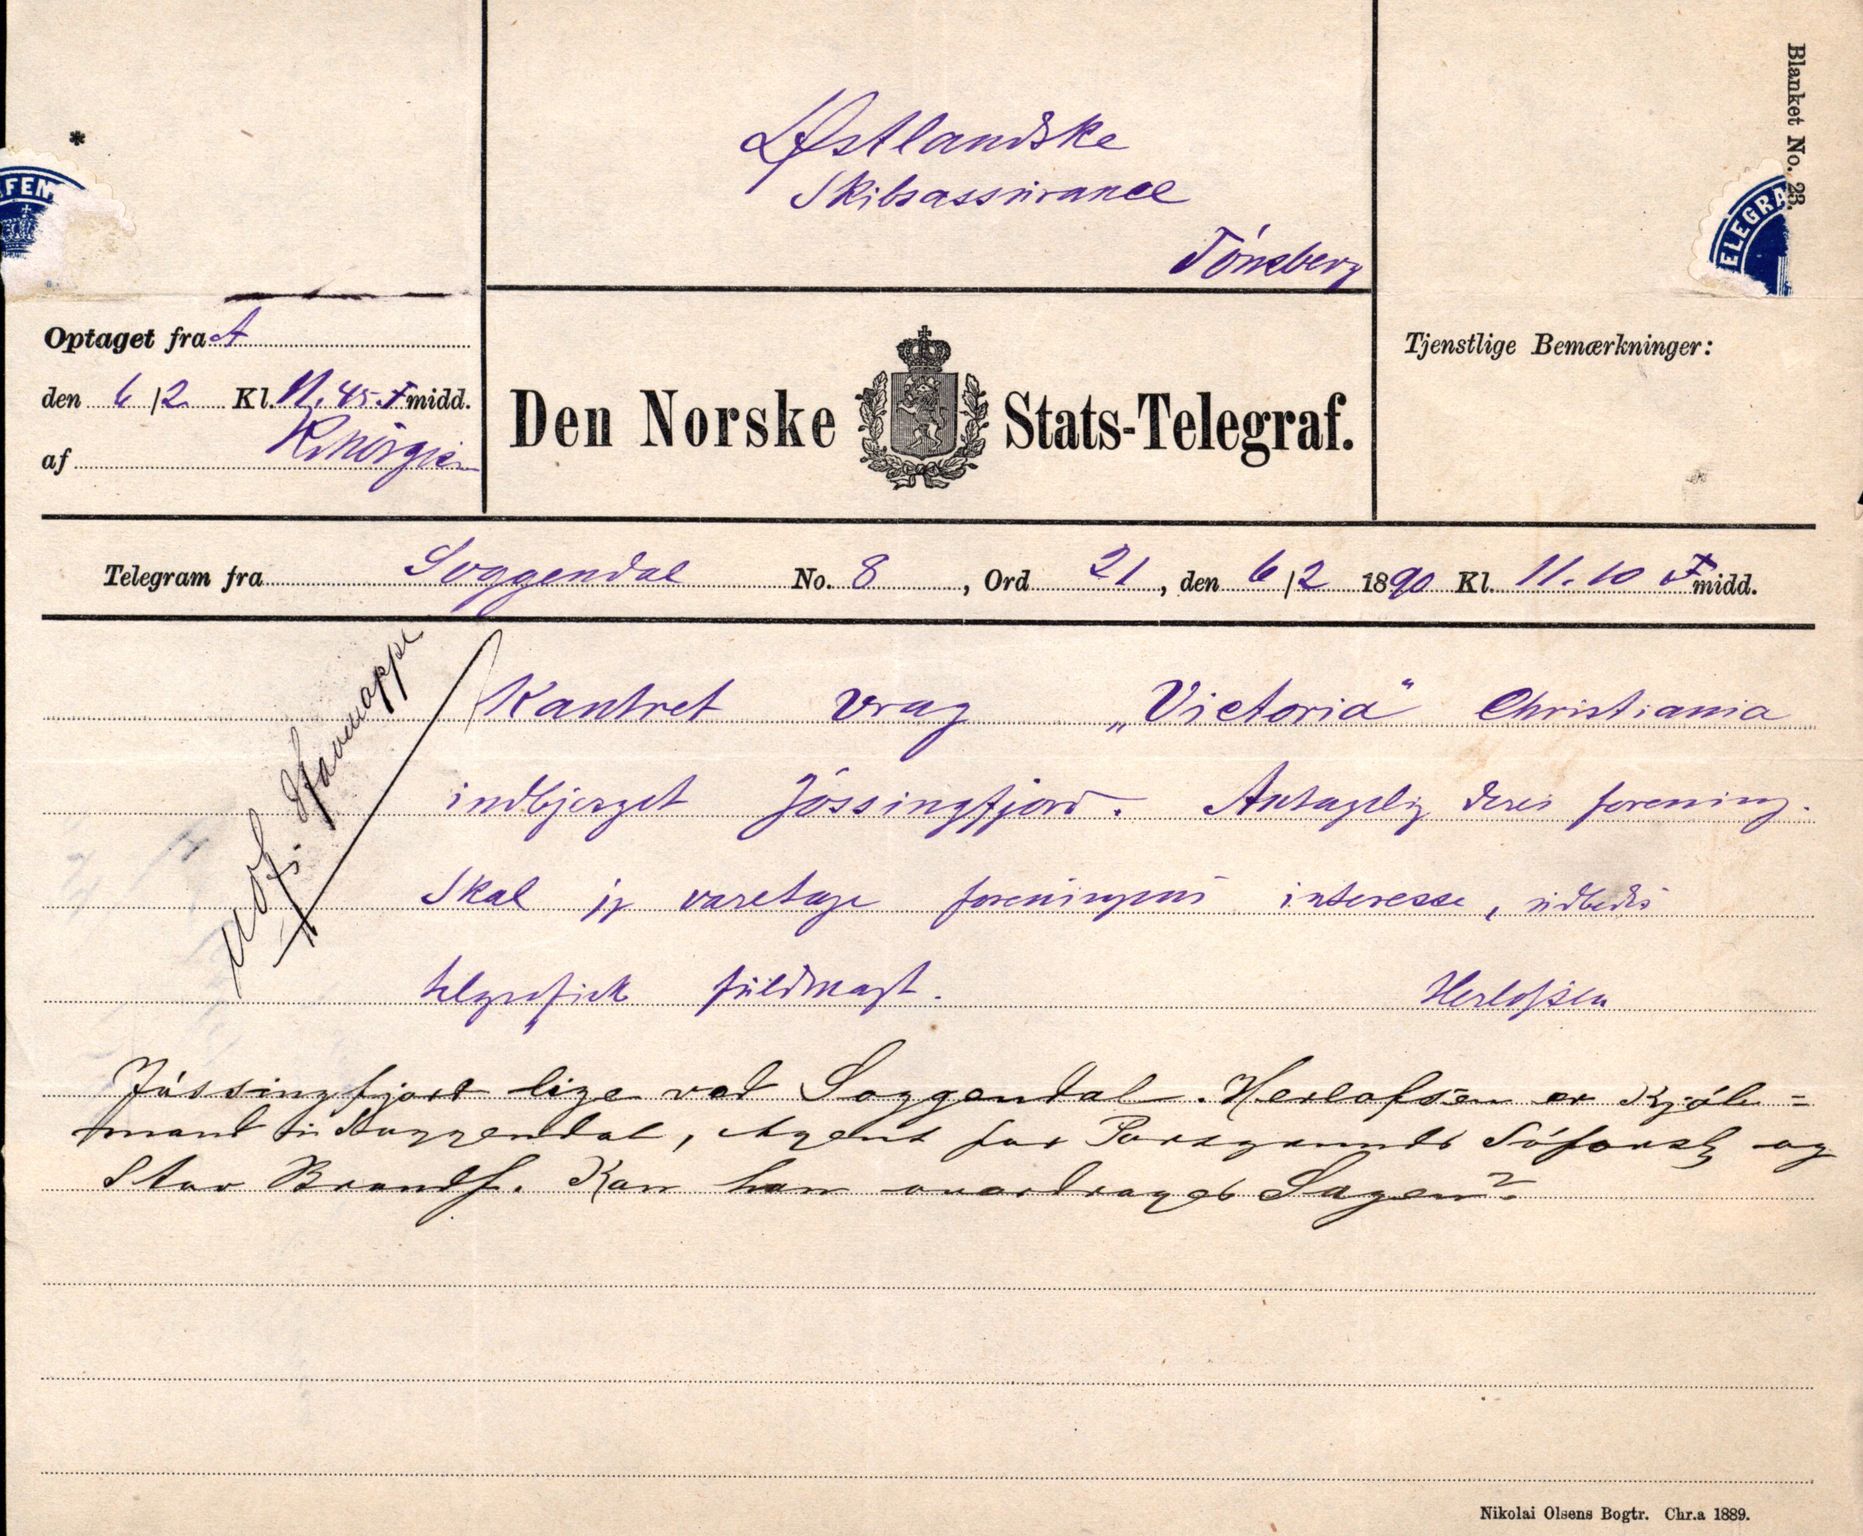 Blanket No. 23.
*
Østlandske
Skibsassurance
Tönsberg
FEN
ELEGRA
Optaget fra A
den 6/2 Kl. 11.45 F midd.
af
Den Norske Stats-Telegraf.
Tjenstlige Bemærkninger:
Telegram fra Soggendal No. 8, Ord 21, den 6/2 1890 Kl. 11.10 F midd.
Kantret vrag „Victoria" Christiania
indbjerget Jössingfjord. Antagelig deres forening.
Skal jeg varetage foreningens interesse, udbedes
telegrafisk fuldmagt. Herlofsen
Jössingfjord lige ved Soggendal. Herlofsen er Kjöb=
mand i Soggendal, Agent for Porsgrunds Söforsk og
Stor Brandf. Kan han overdrages Sagen?
Nikolai Olsens Bogtr. Chr.a 1889.